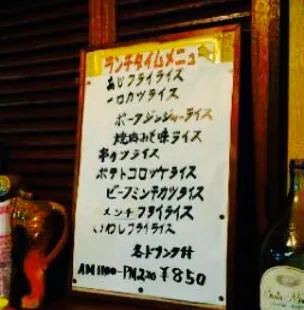 ランチタイムメニュー
あじフライライス
一口カツライス
ポークジンジャーライス
焼肉みそ味ライス
串カツライス
ポテトコロッケライス
ビーフミンチカツライス
メンチフライライス
いわしフライライス
各ドリンク付
AM11:00-PM2:30 ¥850